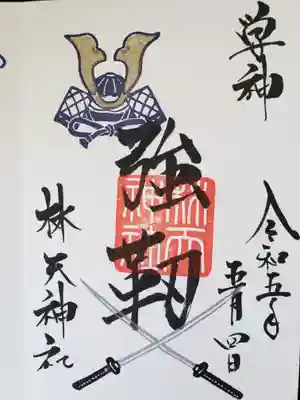 学神
令和五年
五月四日
強靭
林天
神社
林天神社